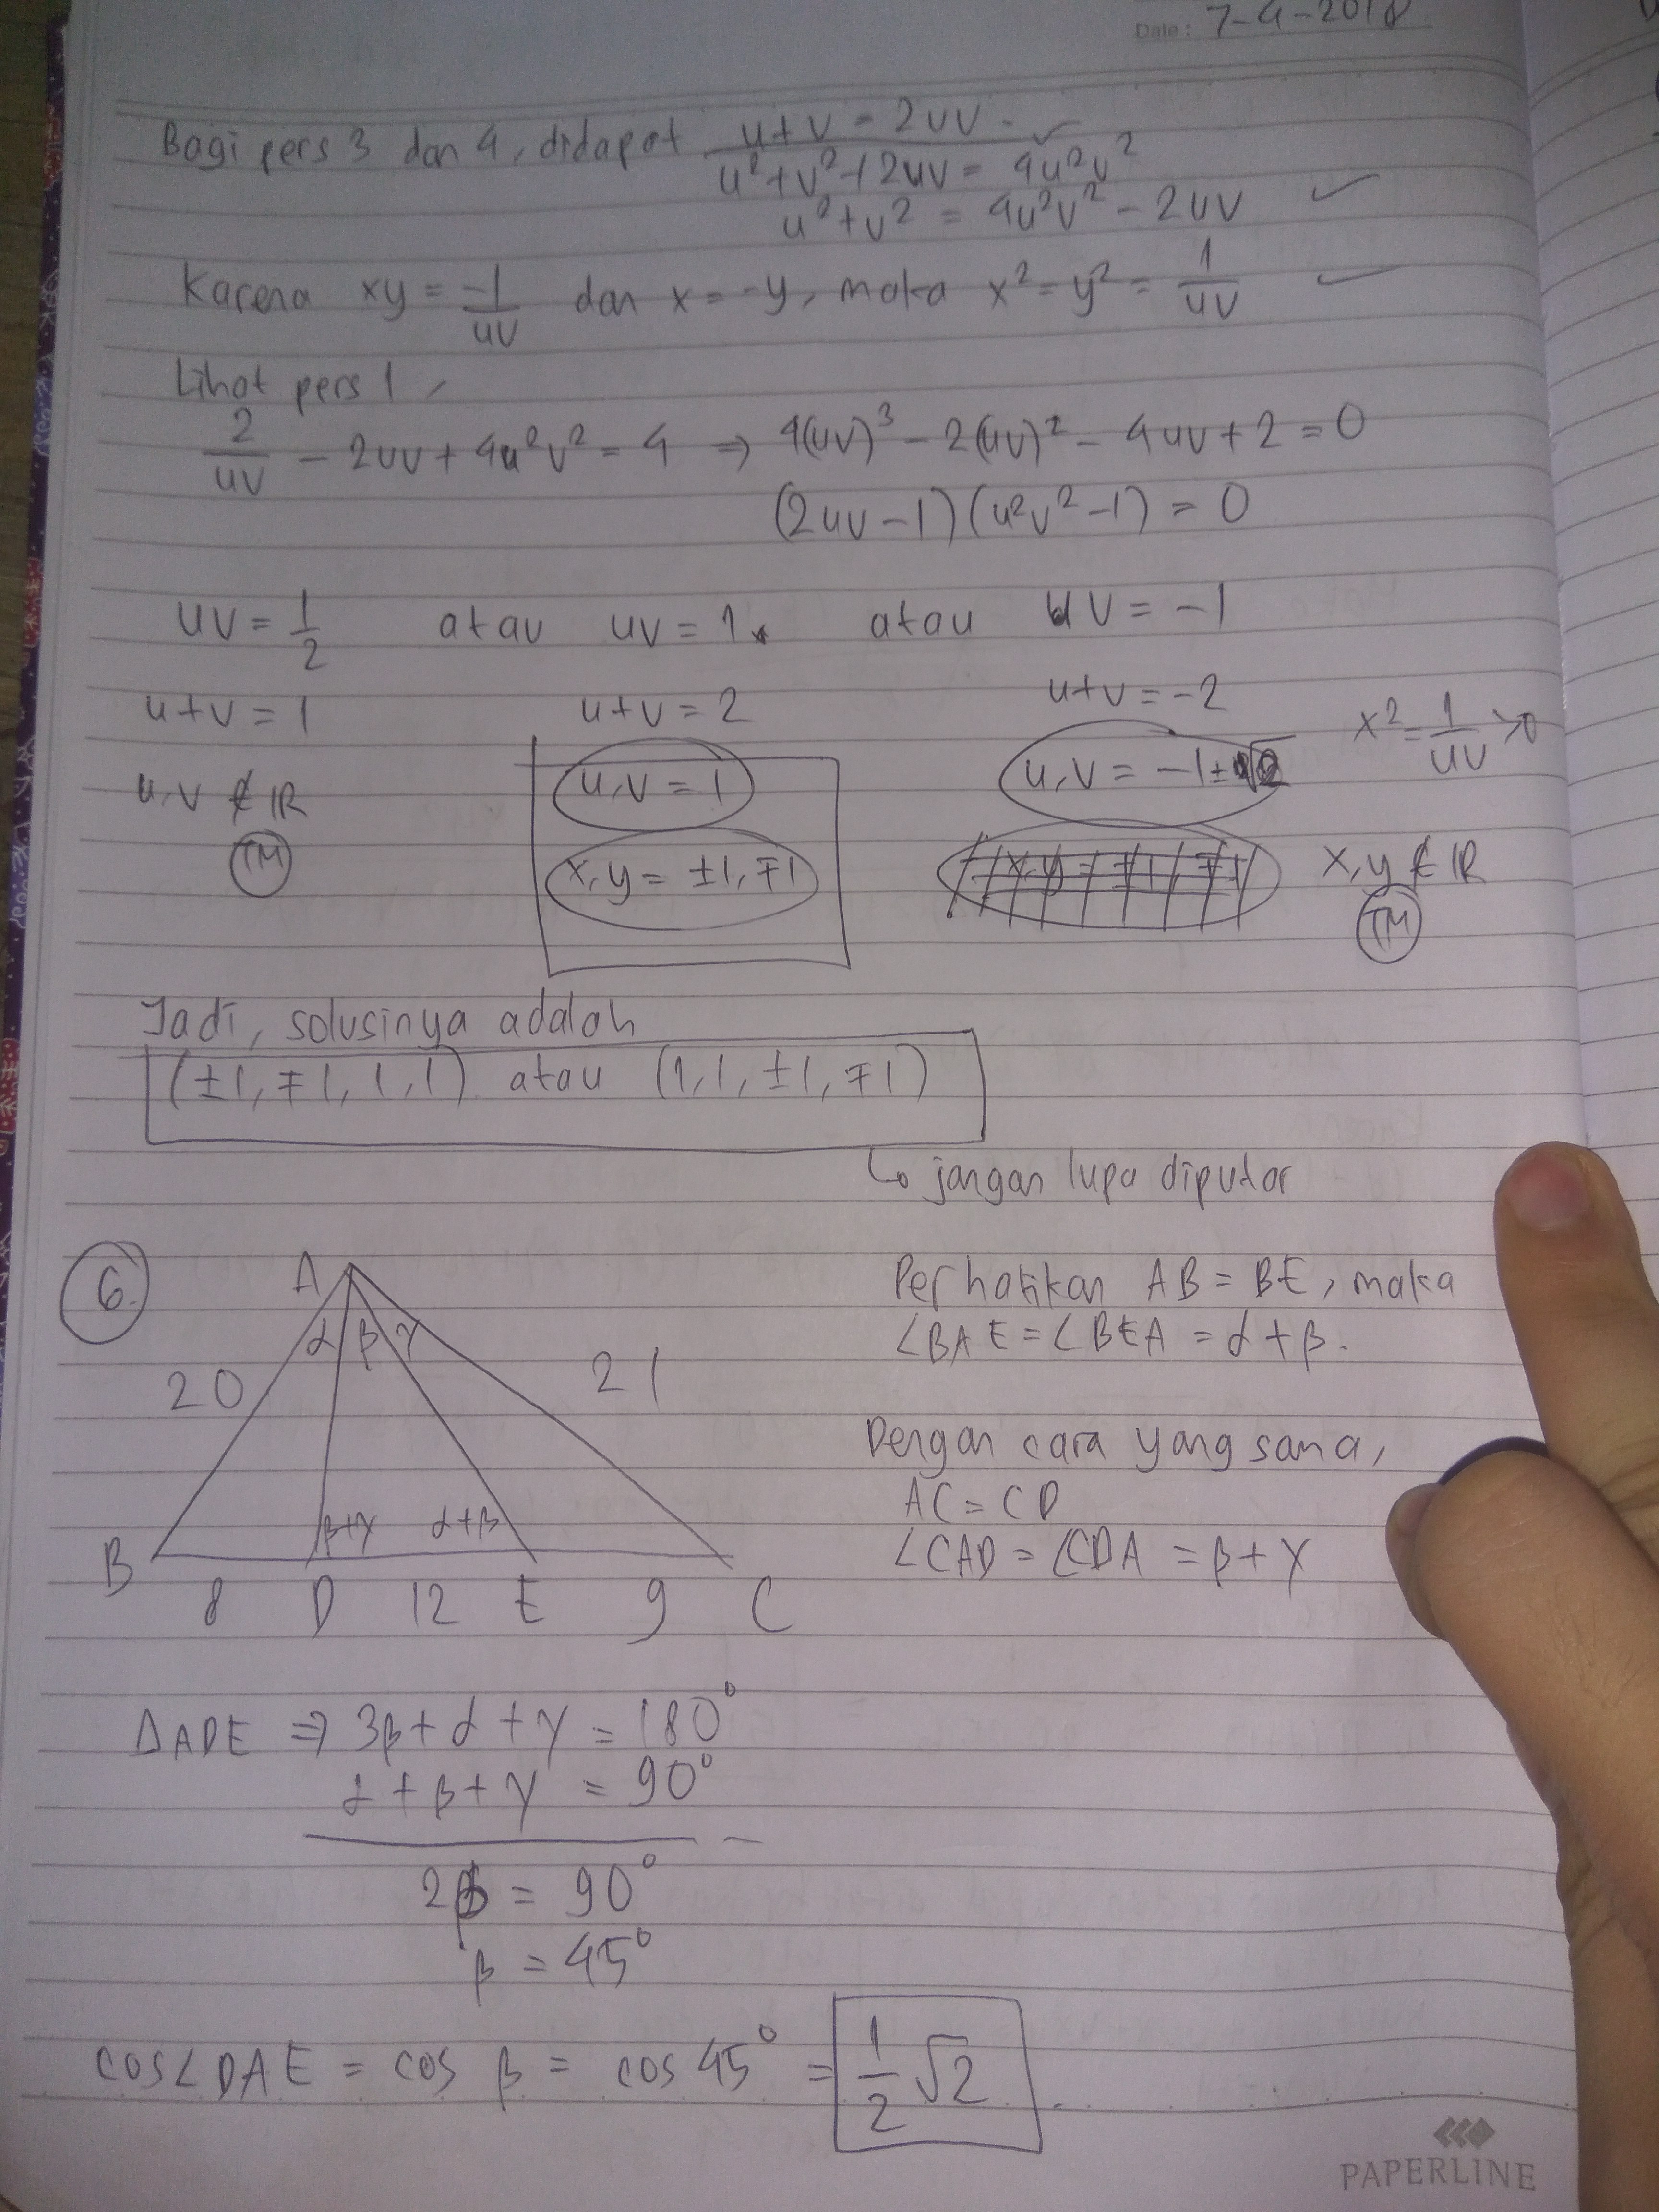 Date : 7-4-2018
Bagi pers 3 dan 4, didapat u+v = 2uv
u²+v²+2uv = 4u²v²
u²+v² = 4u²v² - 2uv
Karena xy = -1/uv dan x = -y, maka x² = y² = 1/uv
Lihat pers 1,
2/uv - 2uv + 4u²v² = 4 ⇒ 4(uv)³ - 2(uv)² - 4uv + 2 = 0
(2uv - 1)(u²v² - 1) = 0
uv = 1/2 atau uv = 1 atau uv = -1
u+v = 1 u+v = 2 u+v = -2 x² = 1/uv > 0
u,v ∉ IR u,v = 1 u,v = -1±√2
TM x,y = ±1, ∓1 x,y ∉ IR
TM
Jadi, solusinya adalah
(±1, ∓1, 1, 1) atau (1, 1, ±1, ∓1)
↳ jangan lupa diputar
6. A Perhatikan AB = BE, maka
α β γ ∠BAE = ∠BEA = α + β.
20 21
Dengan cara yang sama,
AC = CD
β+γ α+β ∠CAD = ∠CDA = β + γ
B 8 D 12 E 9 C
ΔADE ⇒ 3β + α + γ = 180°
α + β + γ = 90°
2β = 90°
β = 45°
cos∠DAE = cos β = cos 45° = 1/2 √2
PAPERLINE